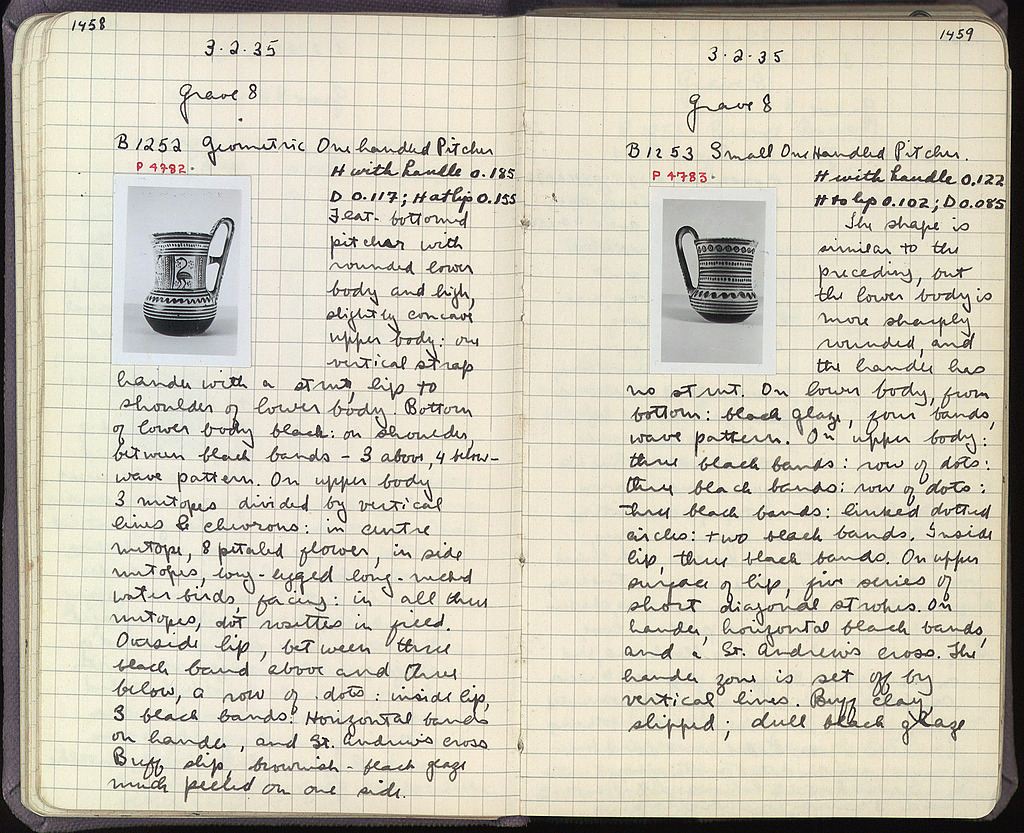 1458
3·2·35
Grave 8
B 1252 Geometric One handled Pitcher
P 4782·
H with handle 0.185
D 0.117; H at lip 0.155
Flat-bottomed
pitcher with
rounded lower
body and high,
slightly concave
upper body: one
vertical strap
handle with a strut, lip to
shoulder of lower body. Bottom
of lower body black: on shoulder,
between black bands – 3 above, 4 below –
wave pattern. On upper body
3 metopes divided by vertical
lines & chevrons: in centre
metope, 8 petaled flower, in side
metopes, long-legged long-necked
water birds, facing: in all three
metopes, dot rosettes in field.
Outside lip, between three
black band above and three
below, a row of dots: inside lip,
3 black bands. Horizontal bands
on handle, and St. Andrew's cross
Buff slip, brownish-black glaze
much peeled on one side.
1459
3·2·35
Grave 8
B 1253 Small One Handled Pitcher.
P 4783·
H with handle 0.122
H to lip 0.102; D 0.085
The shape is
similar to the
preceding, but
the lower body is
more sharply
rounded, and
the handle has
no strut. On lower body, from
bottom: black glaze, four bands,
wave pattern. On upper body:
three black bands: row of dots:
three black bands: row of dots:
three black bands: linked dotted
circles: two black bands. Inside
lip, three black bands. On upper
surface of lip, five series of
short diagonal strokes. On
handle, horizontal black bands,
and a St. Andrew's cross. The
handle zone is set off by
vertical lines. Buff clay
slipped; dull black glaze